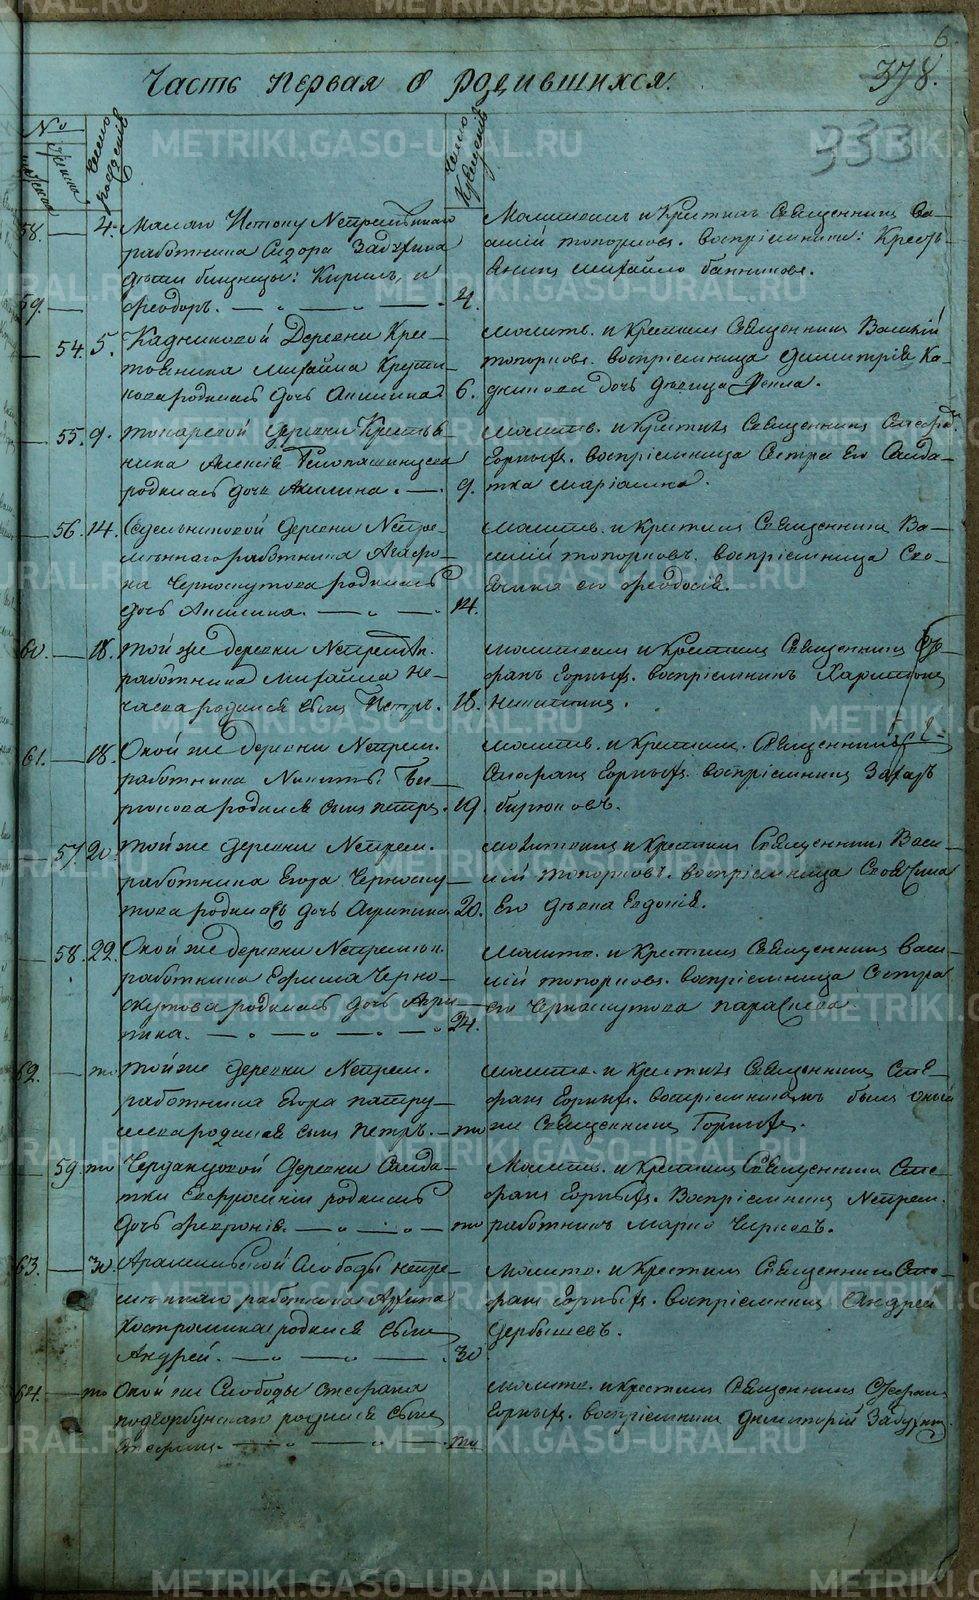 6.
Часть первая о родившихся.
378.
333
№
мужеска
женска
Число рождения
Число крещения
58. — 4. Малаго Истоку Непременнаго
работника Сидора Задурина
дети близнецы: Кирилъ, и
59. — Феодоръ. — 4.
Молитвилъ и Крестилъ Священникъ Ва-
силій топорковъ. восприемники: Кресть-
янинъ михайло банниковъ.
— 54. 5. Кадниковой Деревни Крес-
тьянина михайла Крути-
кова родилась дочь Акилина 6.
молитв. и Крестилъ Священникъ Василий
топорковъ. восприемница Димитрія Ка-
дникова дочь девица Фекла.
— 55. 9. токаревой деревни Крестья
нина Алексія
родилась дочь Акилина. — 9.
молитв. и Крестилъ Священникъ Стефанъ
Горныхъ. восприемница Сестра Его Салда-
тка маріамна.
— 56. 14. Седельниковой деревни Непре-
меннаго работника Агафо-
на Черноскутова родилась
дочь Акилина. — 14.
молитв. и Крестилъ Священникъ Ва-
силій топорковъ. восприемница Сво-
ячина его Феодосія.
60. — 18. той же деревни Непременн.
работника михайла Не-
чаева родился сынъ Петръ. 18.
молитвилъ и Крестилъ Священникъ Сте-
фанъ Горныхъ. восприемникъ Харитонъ
Никитинъ.
61. — 18. Оной же деревни Непрем.
работника Никиты Би-
рюкова родился сынъ петръ. 19.
молитв. и Крестилъ Священникъ
Стефанъ Горныхъ. восприемникъ Захаръ
бирюковъ.
— 57. 20. той же деревни Непрем.
работника Егора Черноску-
това родилась дочь Агрипина. 20.
молитвилъ и Крестилъ Священникъ Васи-
лій топорковъ. восприемница Своячина
Его девка Евдокія.
— 58. 22. Оной же деревни Непременн.
работника Ефима Черно-
скутова родилась дочь Агри-
пина. — 24.
молитв. и Крестилъ Священникъ Васи-
лій топорковъ. восприемница Сестра
его Черноскутова параскева
62. — то той же деревни Непрем.
работника Егора патру-
шева родился сынъ Петръ. — то
молитв. и Крестилъ Священникъ Сте-
фанъ Горныхъ. восприемникомъ былъ оный
же Священникъ Горныхъ.
— 59. то Черданцовой деревни Салда-
тки Евфросиніи родилась
дочь Феврониія. — то
молитв. и Крестилъ Священникъ Сте-
фанъ Горныхъ. Восприемникъ Непрем.
работникъ марко Чирковъ.
63. — 30. Арамильской Слободы непре-
меннаго работника Архипа
Костромина родился сынъ
Андрей. — 30
молитв. и Крестилъ Священникъ Сте-
фанъ Горныхъ. восприемникъ Андрей
дербышевъ.
64. — то Оной же Слободы Стефана
подгорбунскаго родился сынъ
Стефанъ. — то
молитв. и крестилъ Священникъ Стефанъ
Горныхъ. восприемникъ димитрій Задуринъ.
METRIKI.GASO-URAL.RU